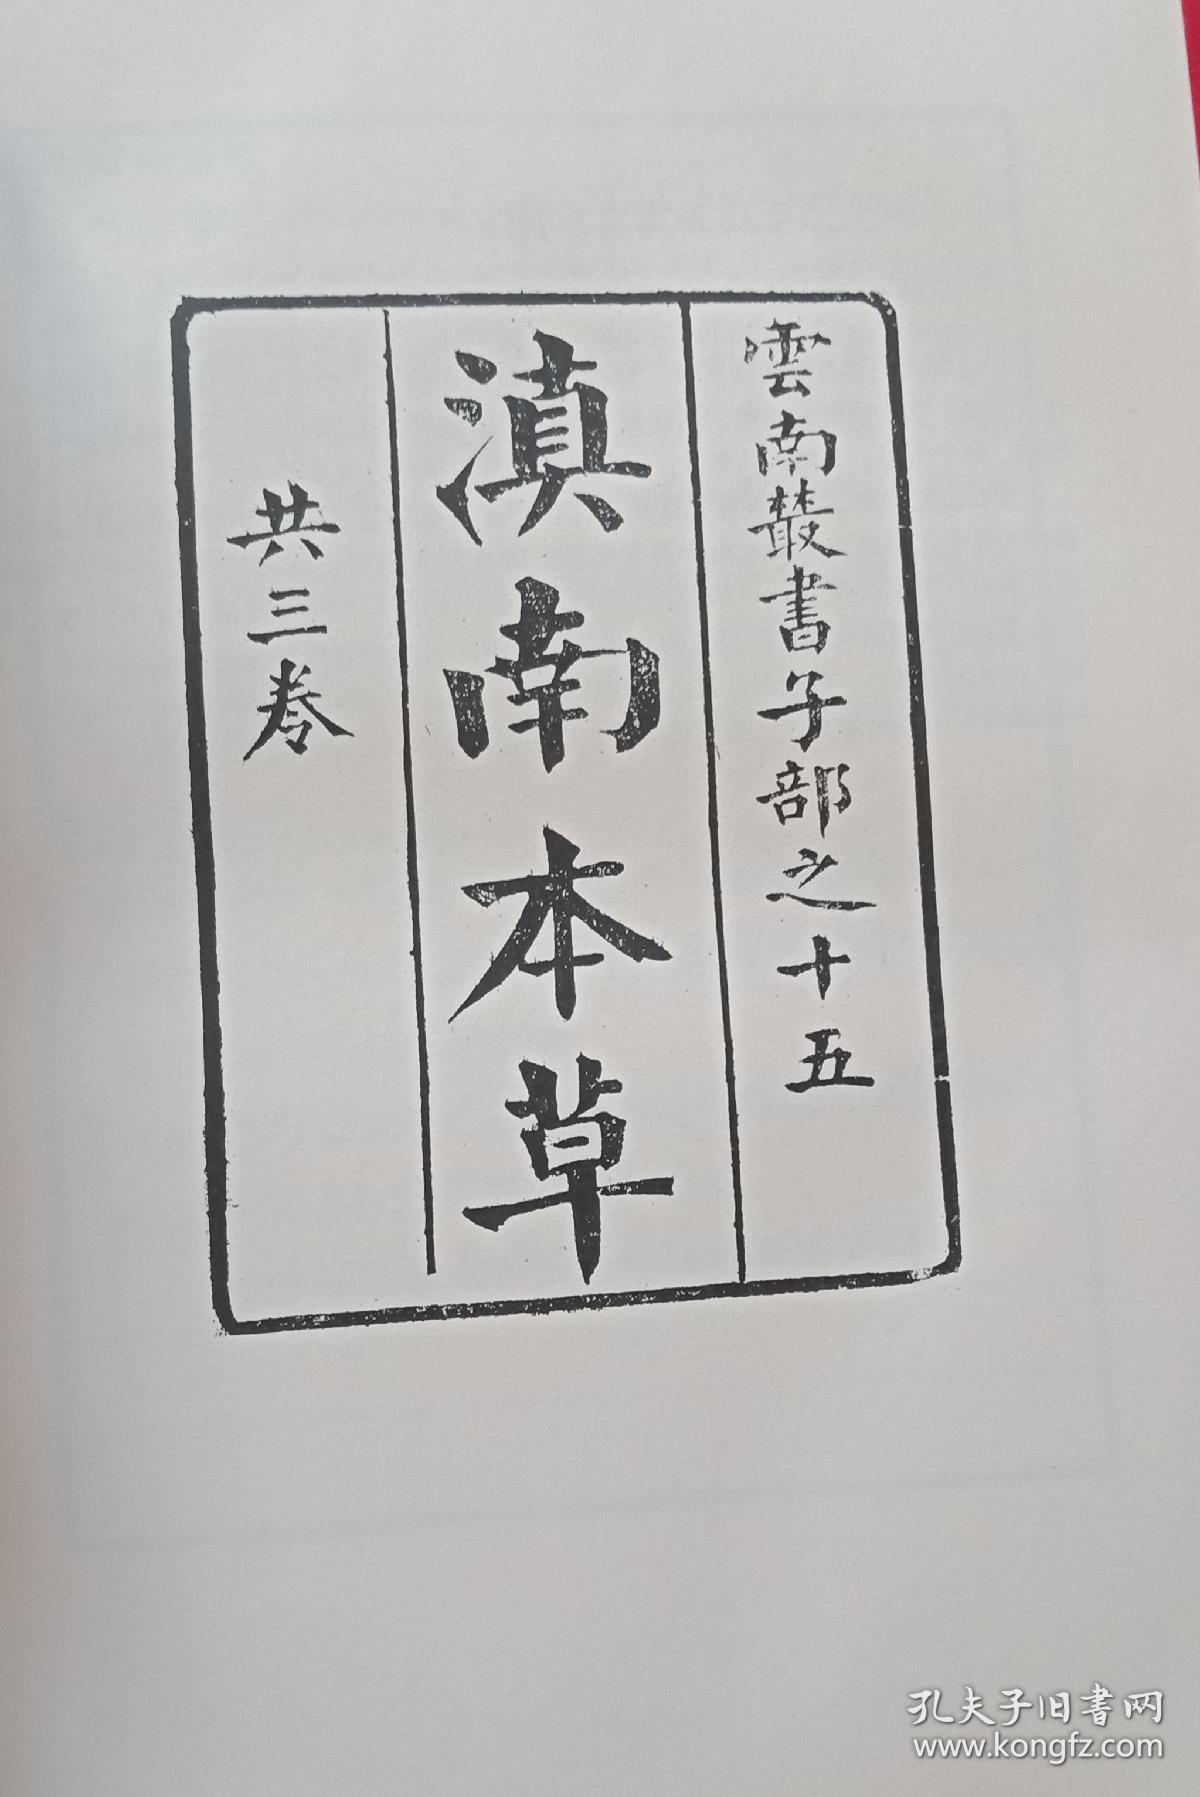 雲南叢書子部之十五
滇南本草
共三卷
孔夫子旧书网
www.kongfz.com